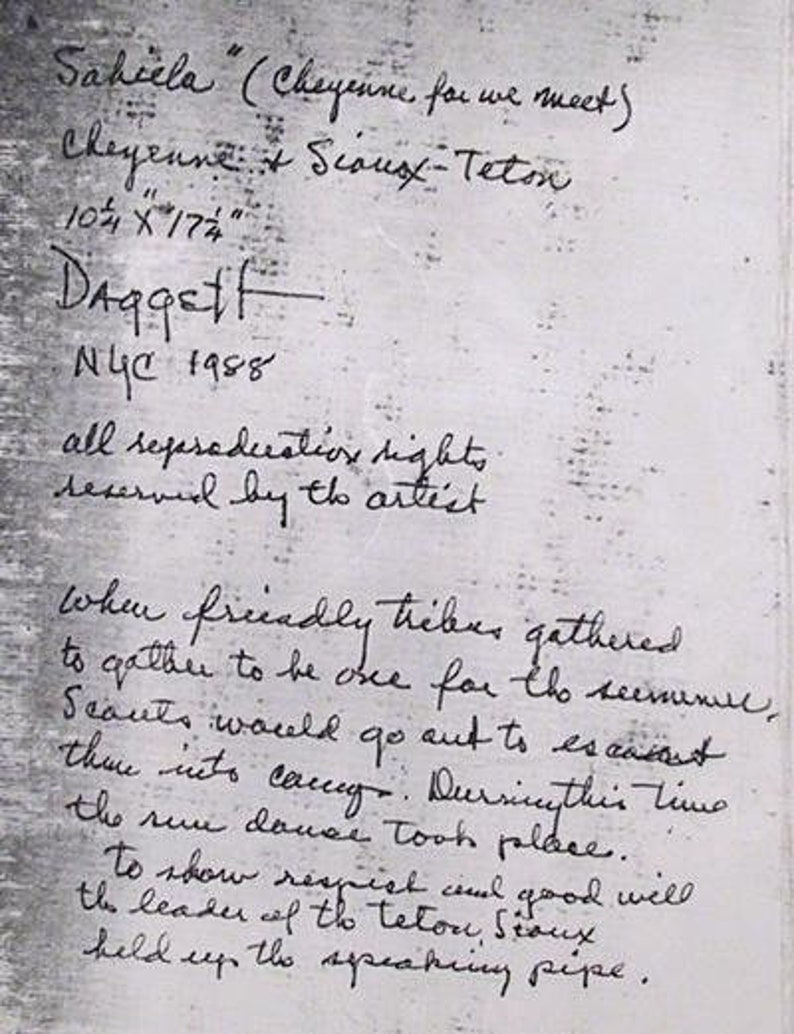 Sahiela" (Cheyenne for we meet)
Cheyenne & Sioux-Teton
10¼" X 17¼"
Daggett
NYC 1988
all reproduction rights
reserved by the artist
When friendly tribes gathered
to gather to be one for the summer.
Scouts would go out to escort
them into camp. Durring this time
the sun dance took place.
to show respect and good will
the leader of the Teton Sioux
held up the speaking pipe.